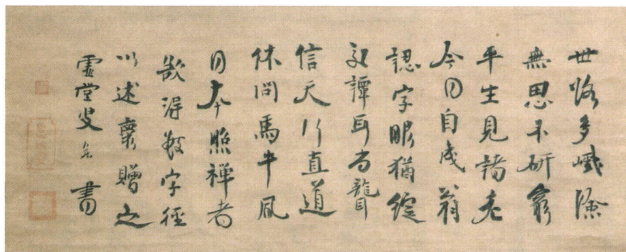 世路多巇險
無思不研窮
平生見諸老
今日自成翁
認字眼猶綻
交譚耳尚聾
信天行直道
休問馬牛風
日本照禪者
欲得數字徑
以述懷贈之
虛堂叟書